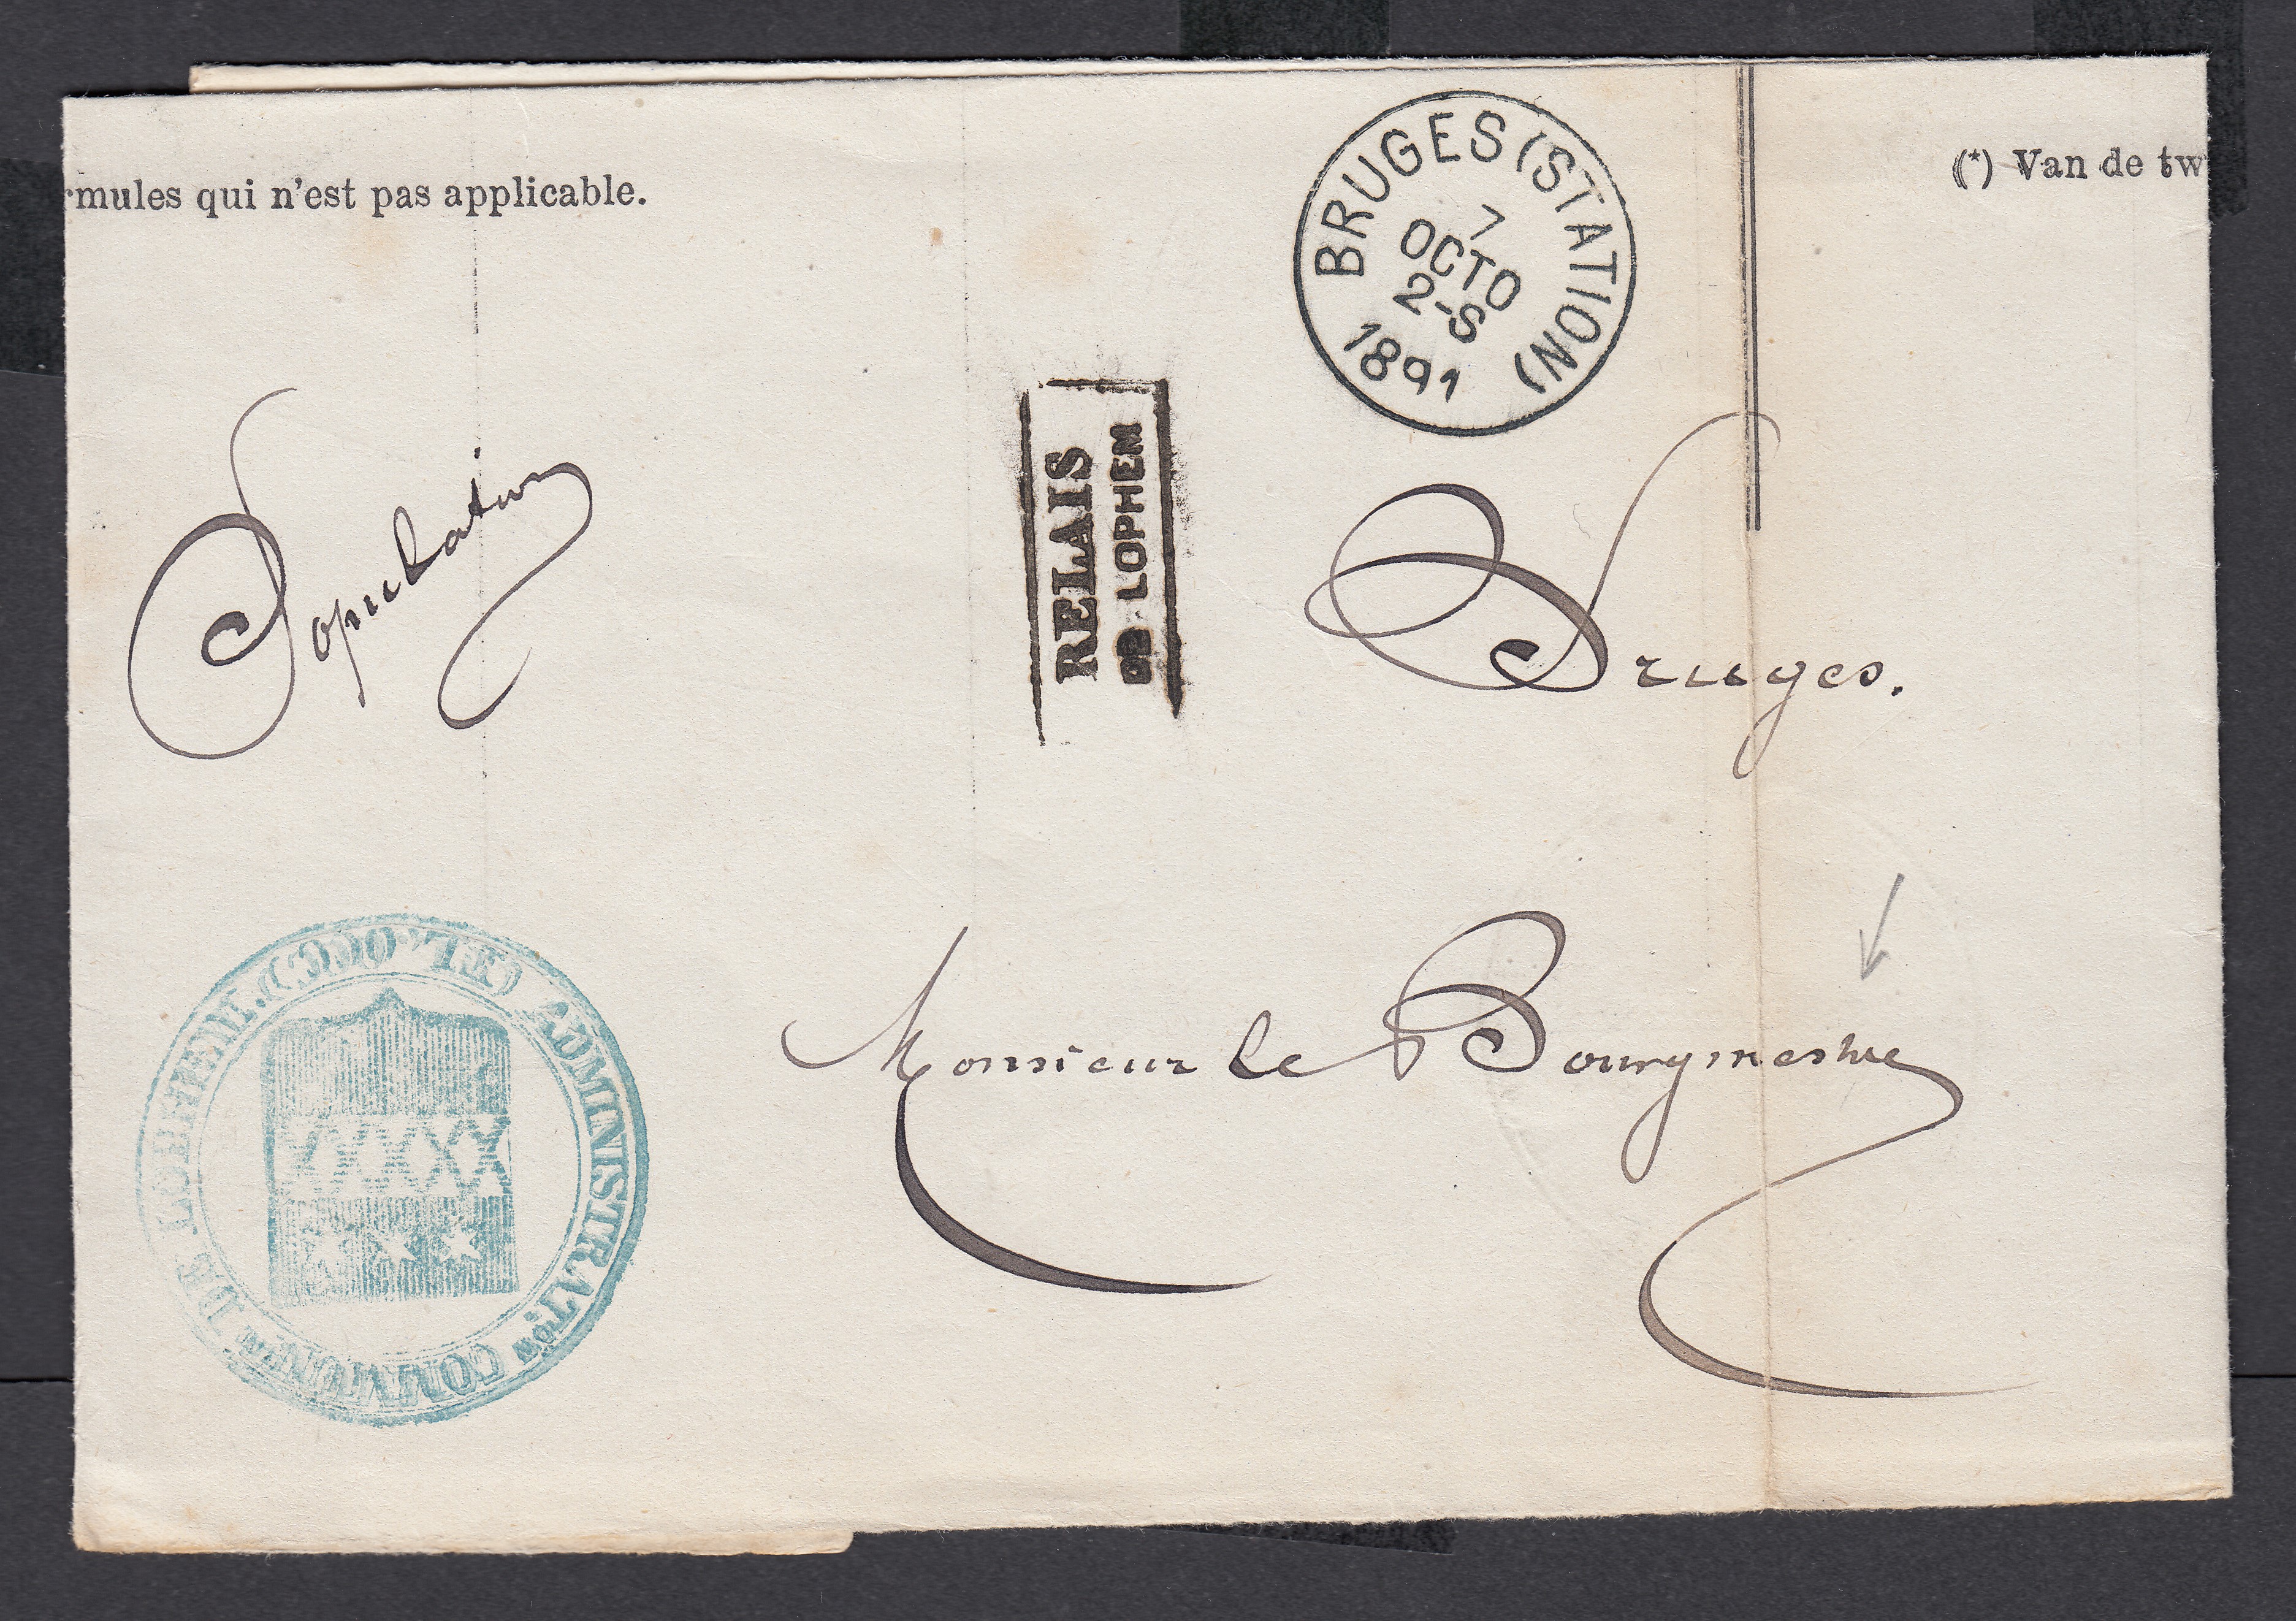 rmules qui n'est pas applicable.
(*) Van de tw
BRUGES (STATION)
7
OCTO
2-S
1891
Population
RELAIS
DE LOPHEM
Bruges.
Monsieur le Bourgmestre
ADMINISTRATON COMMUNLE DE LOPHEM.